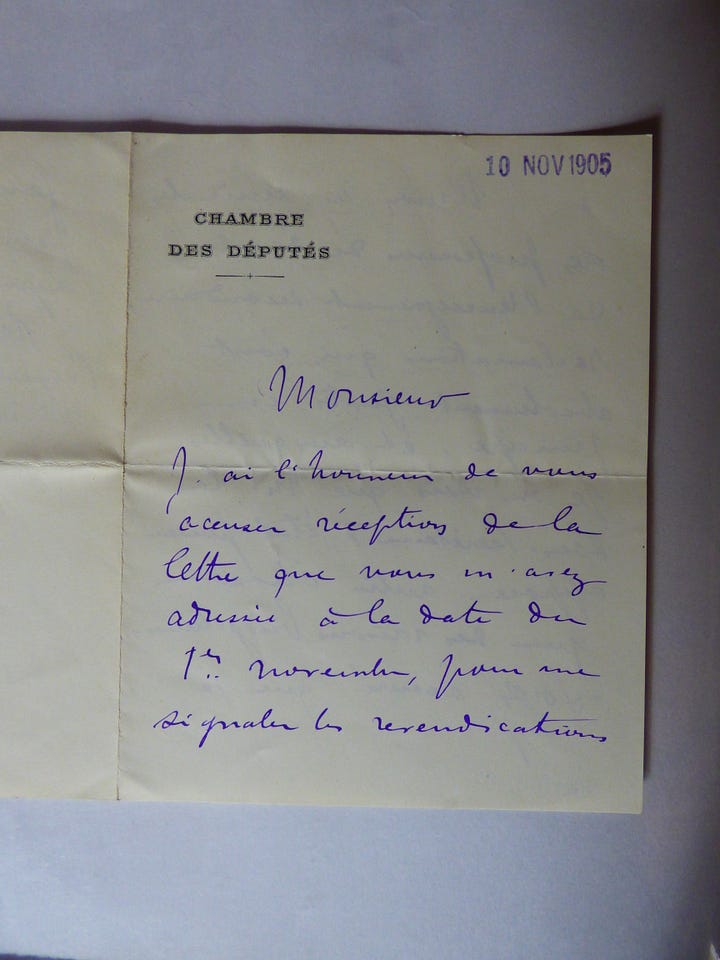 10 NOV 1905
CHAMBRE
DES DÉPUTÉS
Monsieur
J'ai l'honneur de vous
accuser réception de la
lettre que vous m'avez
adressée à la date du
1er novembre, pour me
signaler les revendications